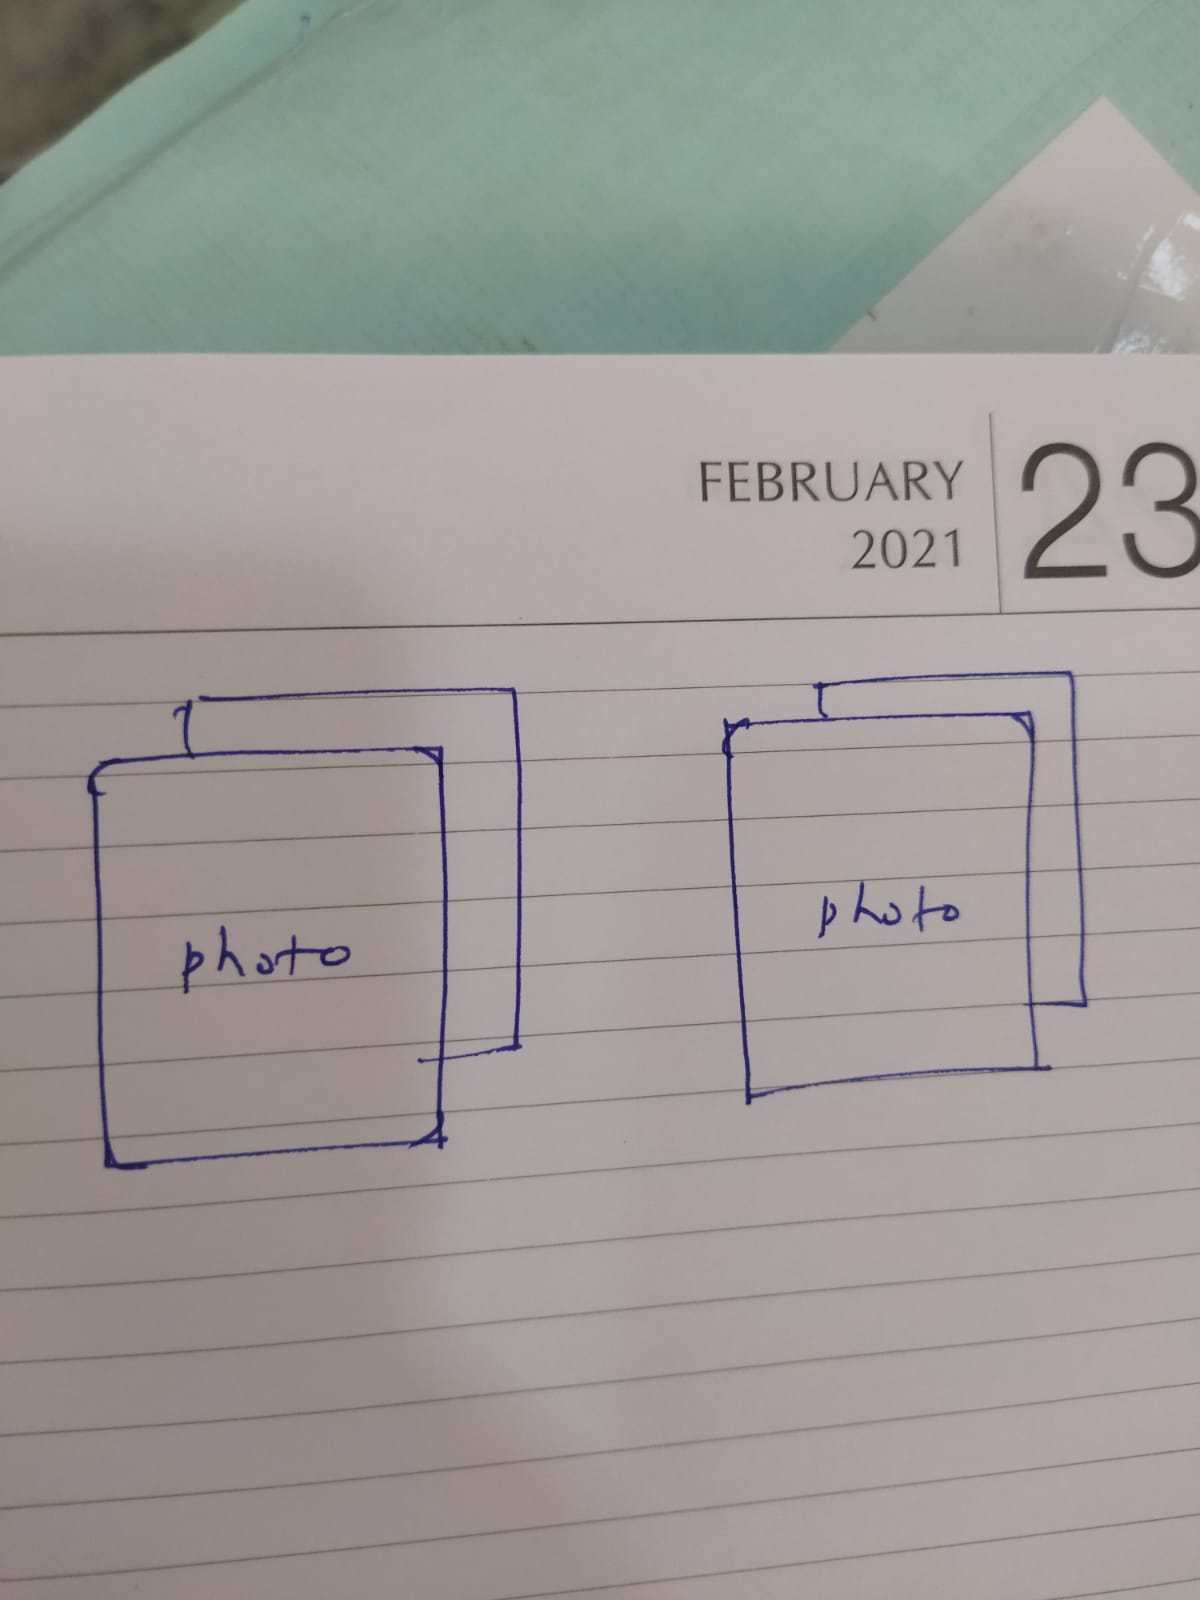 FEBRUARY
2021
23
photo
photo